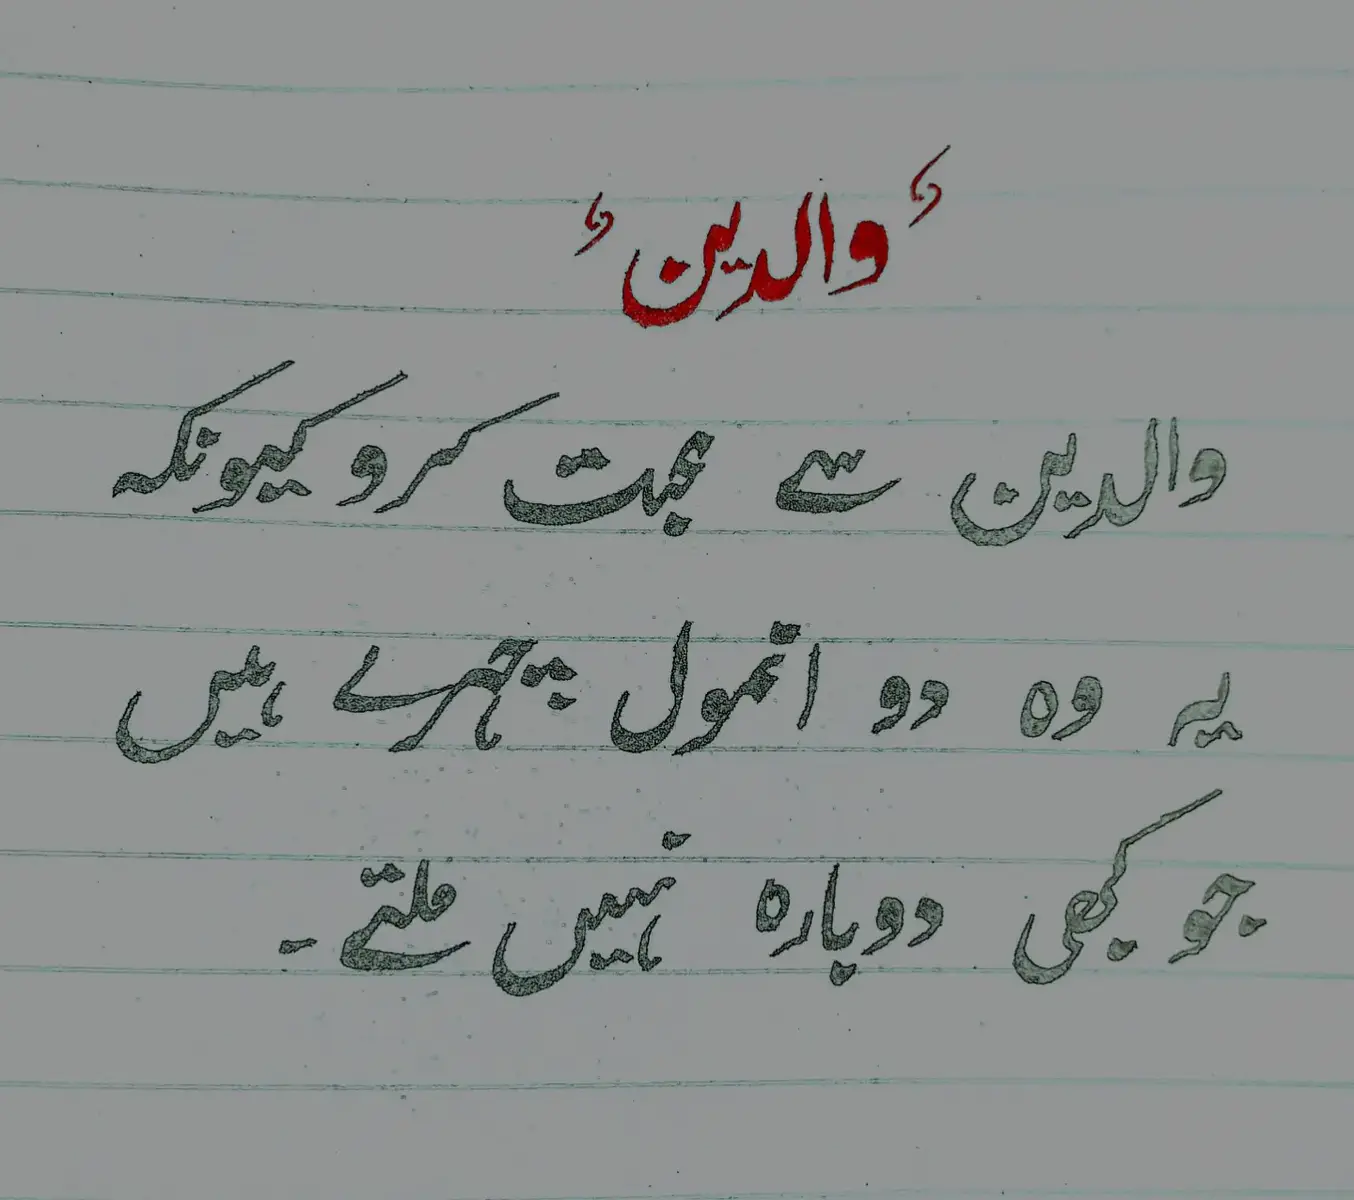 ‘والدین‘
والدین سے محبت کرو کیونکہ
یہ وہ دو انمول چہرے ہیں
جو کبھی دوبارہ نہیں ملتے۔